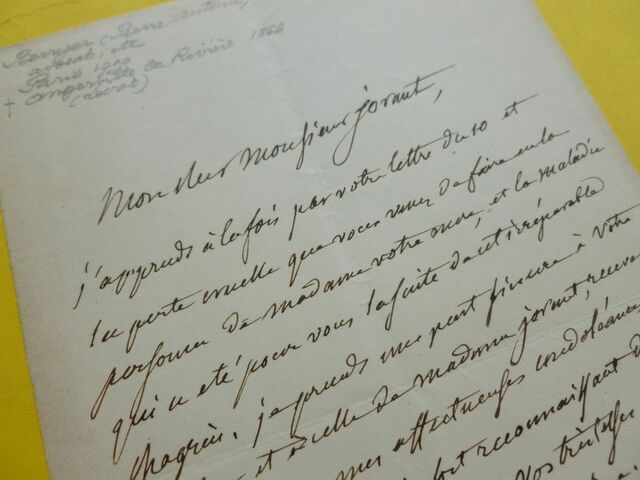 Berryer (Pierre Antoine)
avocat, etc
Paris 1790
† Angerville la Rivière 1868
(Loiret)
Mon cher Monsieur jorant,
j'apprends à la fois par votre lettre du 10 et
la perte cruelle que vous venez de faire en la
personne de Madame votre mère, et la maladie
qui a été pour vous la suite de cet irréparable
chagrin. je prends une part sincère à votre
et à celle de Madame jorant, recevez
mes affectueuses condoléances
fort reconnaissant